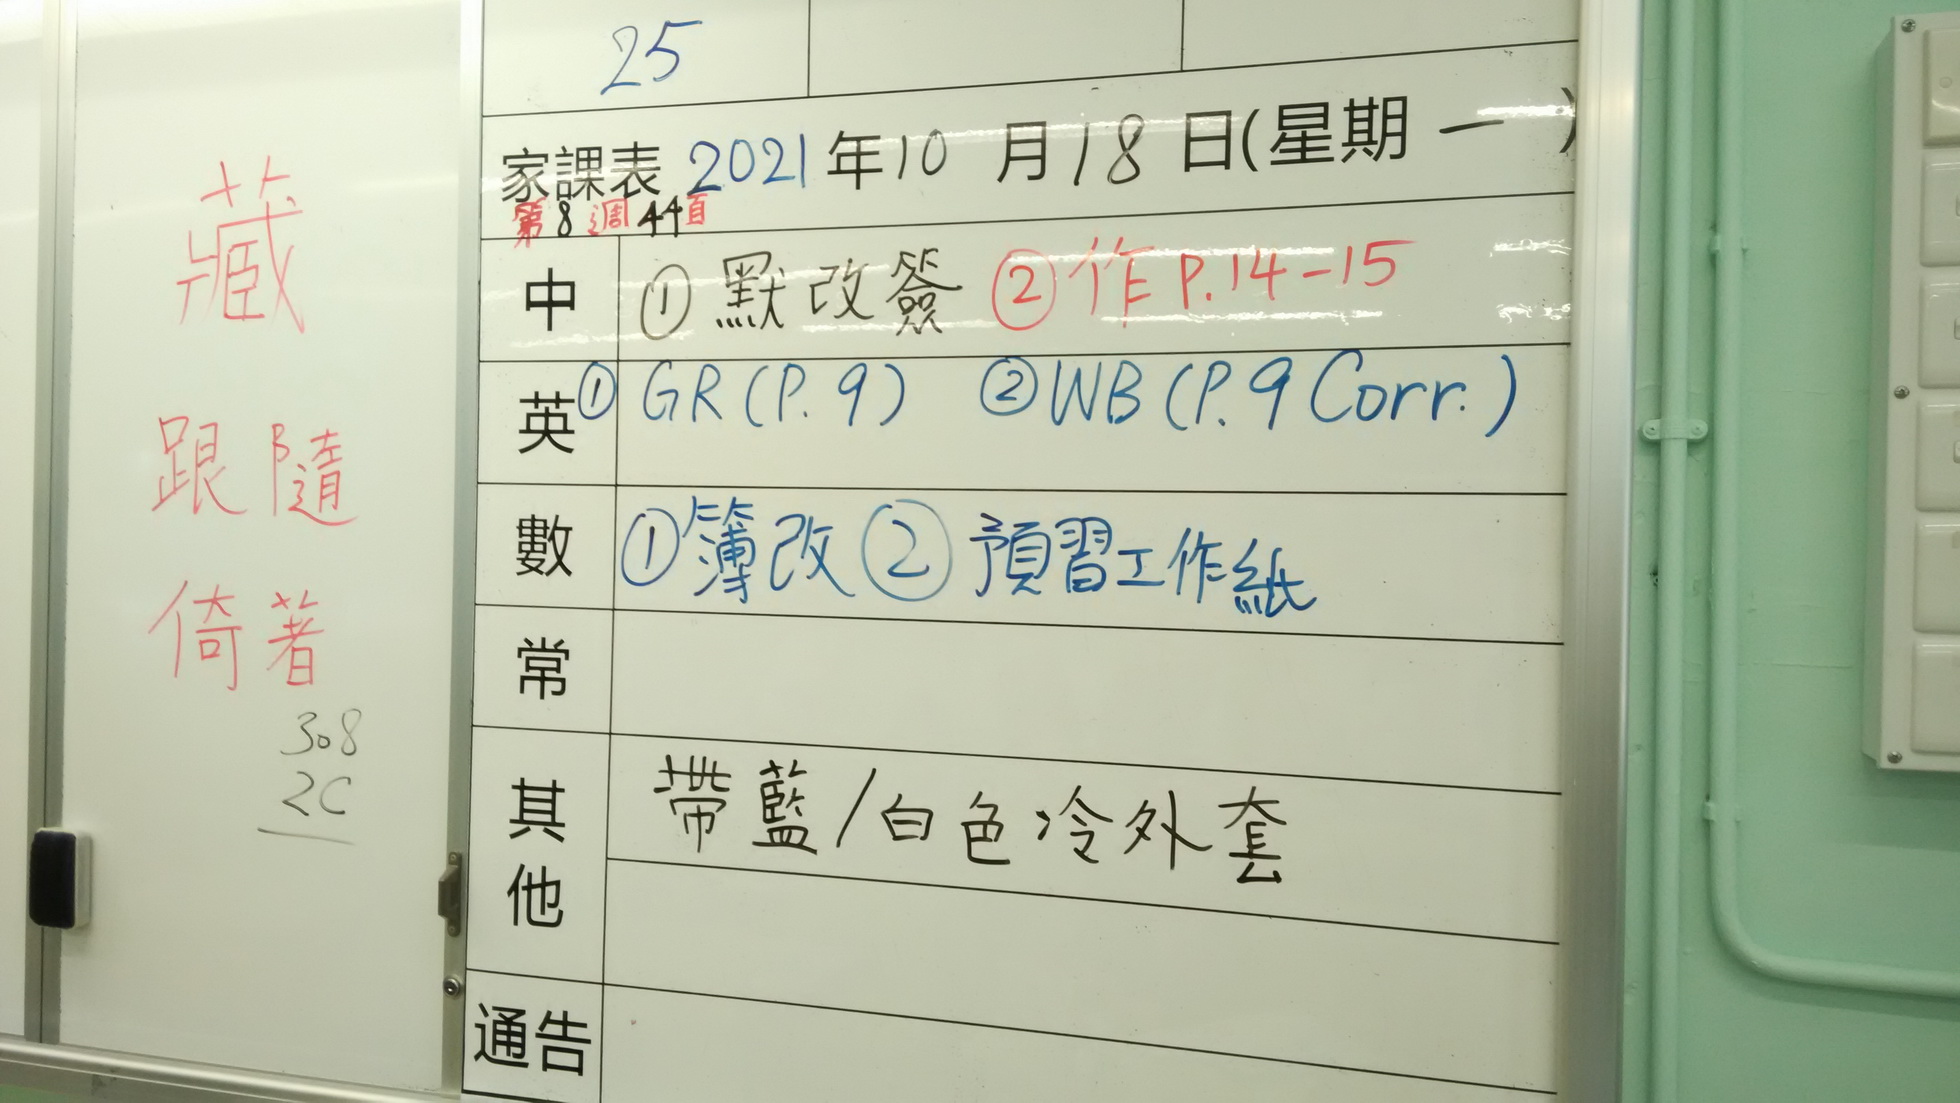 藏
跟隨
倚著
308
2C
25
家課表 2021年10月18日(星期一)
第8週44頁
中 ①默改簽 ②作P.14-15
英 ①GR(P.9) ②WB(P.9 Corr.)
數 ①簿改 ②預習工作紙
常
其他 帶藍/白色冷外套
通告